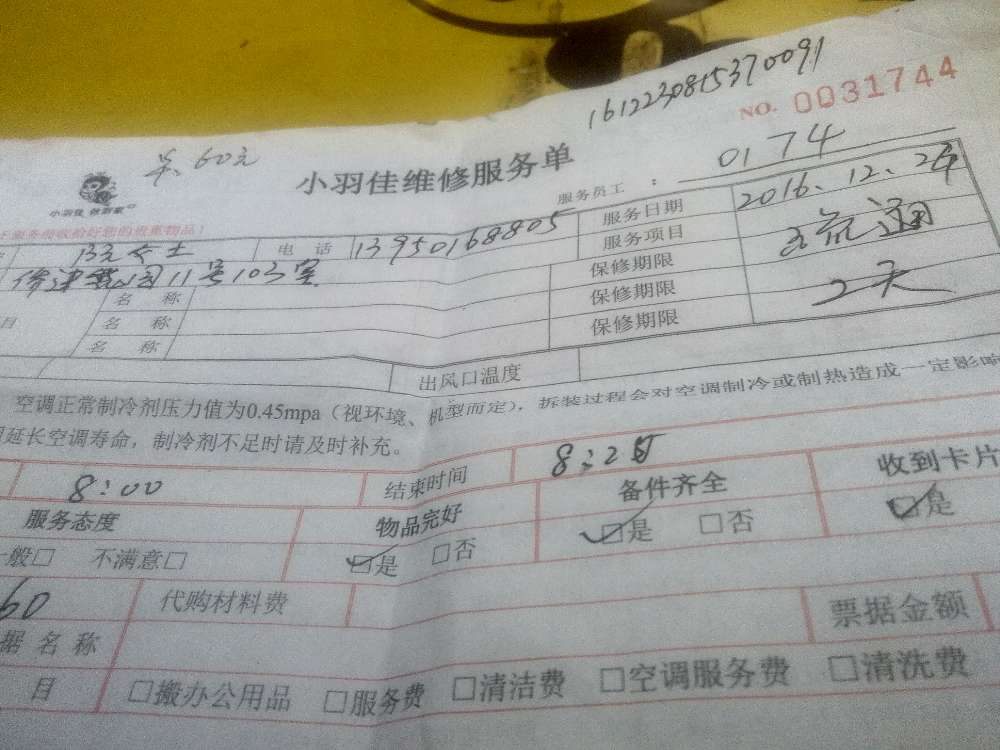 1612230815370091
NO. 0031744
单 60元
小羽佳维修服务单
服务员工：0174
小羽佳 做到家
女士 电话 13950168805 服务日期 2016.12.24
服务项目 疏通
花园11号103室 保修期限
名称 保修期限 2天
目 名称 保修期限
名称
出风口温度
空调正常制冷剂压力值为0.45mpa（视环境、机型而定），拆装过程会对空调制冷或制热造成一定影响
延长空调寿命，制冷剂不足时请及时补充。
8:00 结束时间 8:25
服务态度 物品完好 备件齐全 收到卡片
一般□ 不满意□ □是 □否 □是 □否 □是
60 代购材料费 票据金额
据名称
目 □搬办公用品 □服务费 □清洁费 □空调服务费 □清洗费